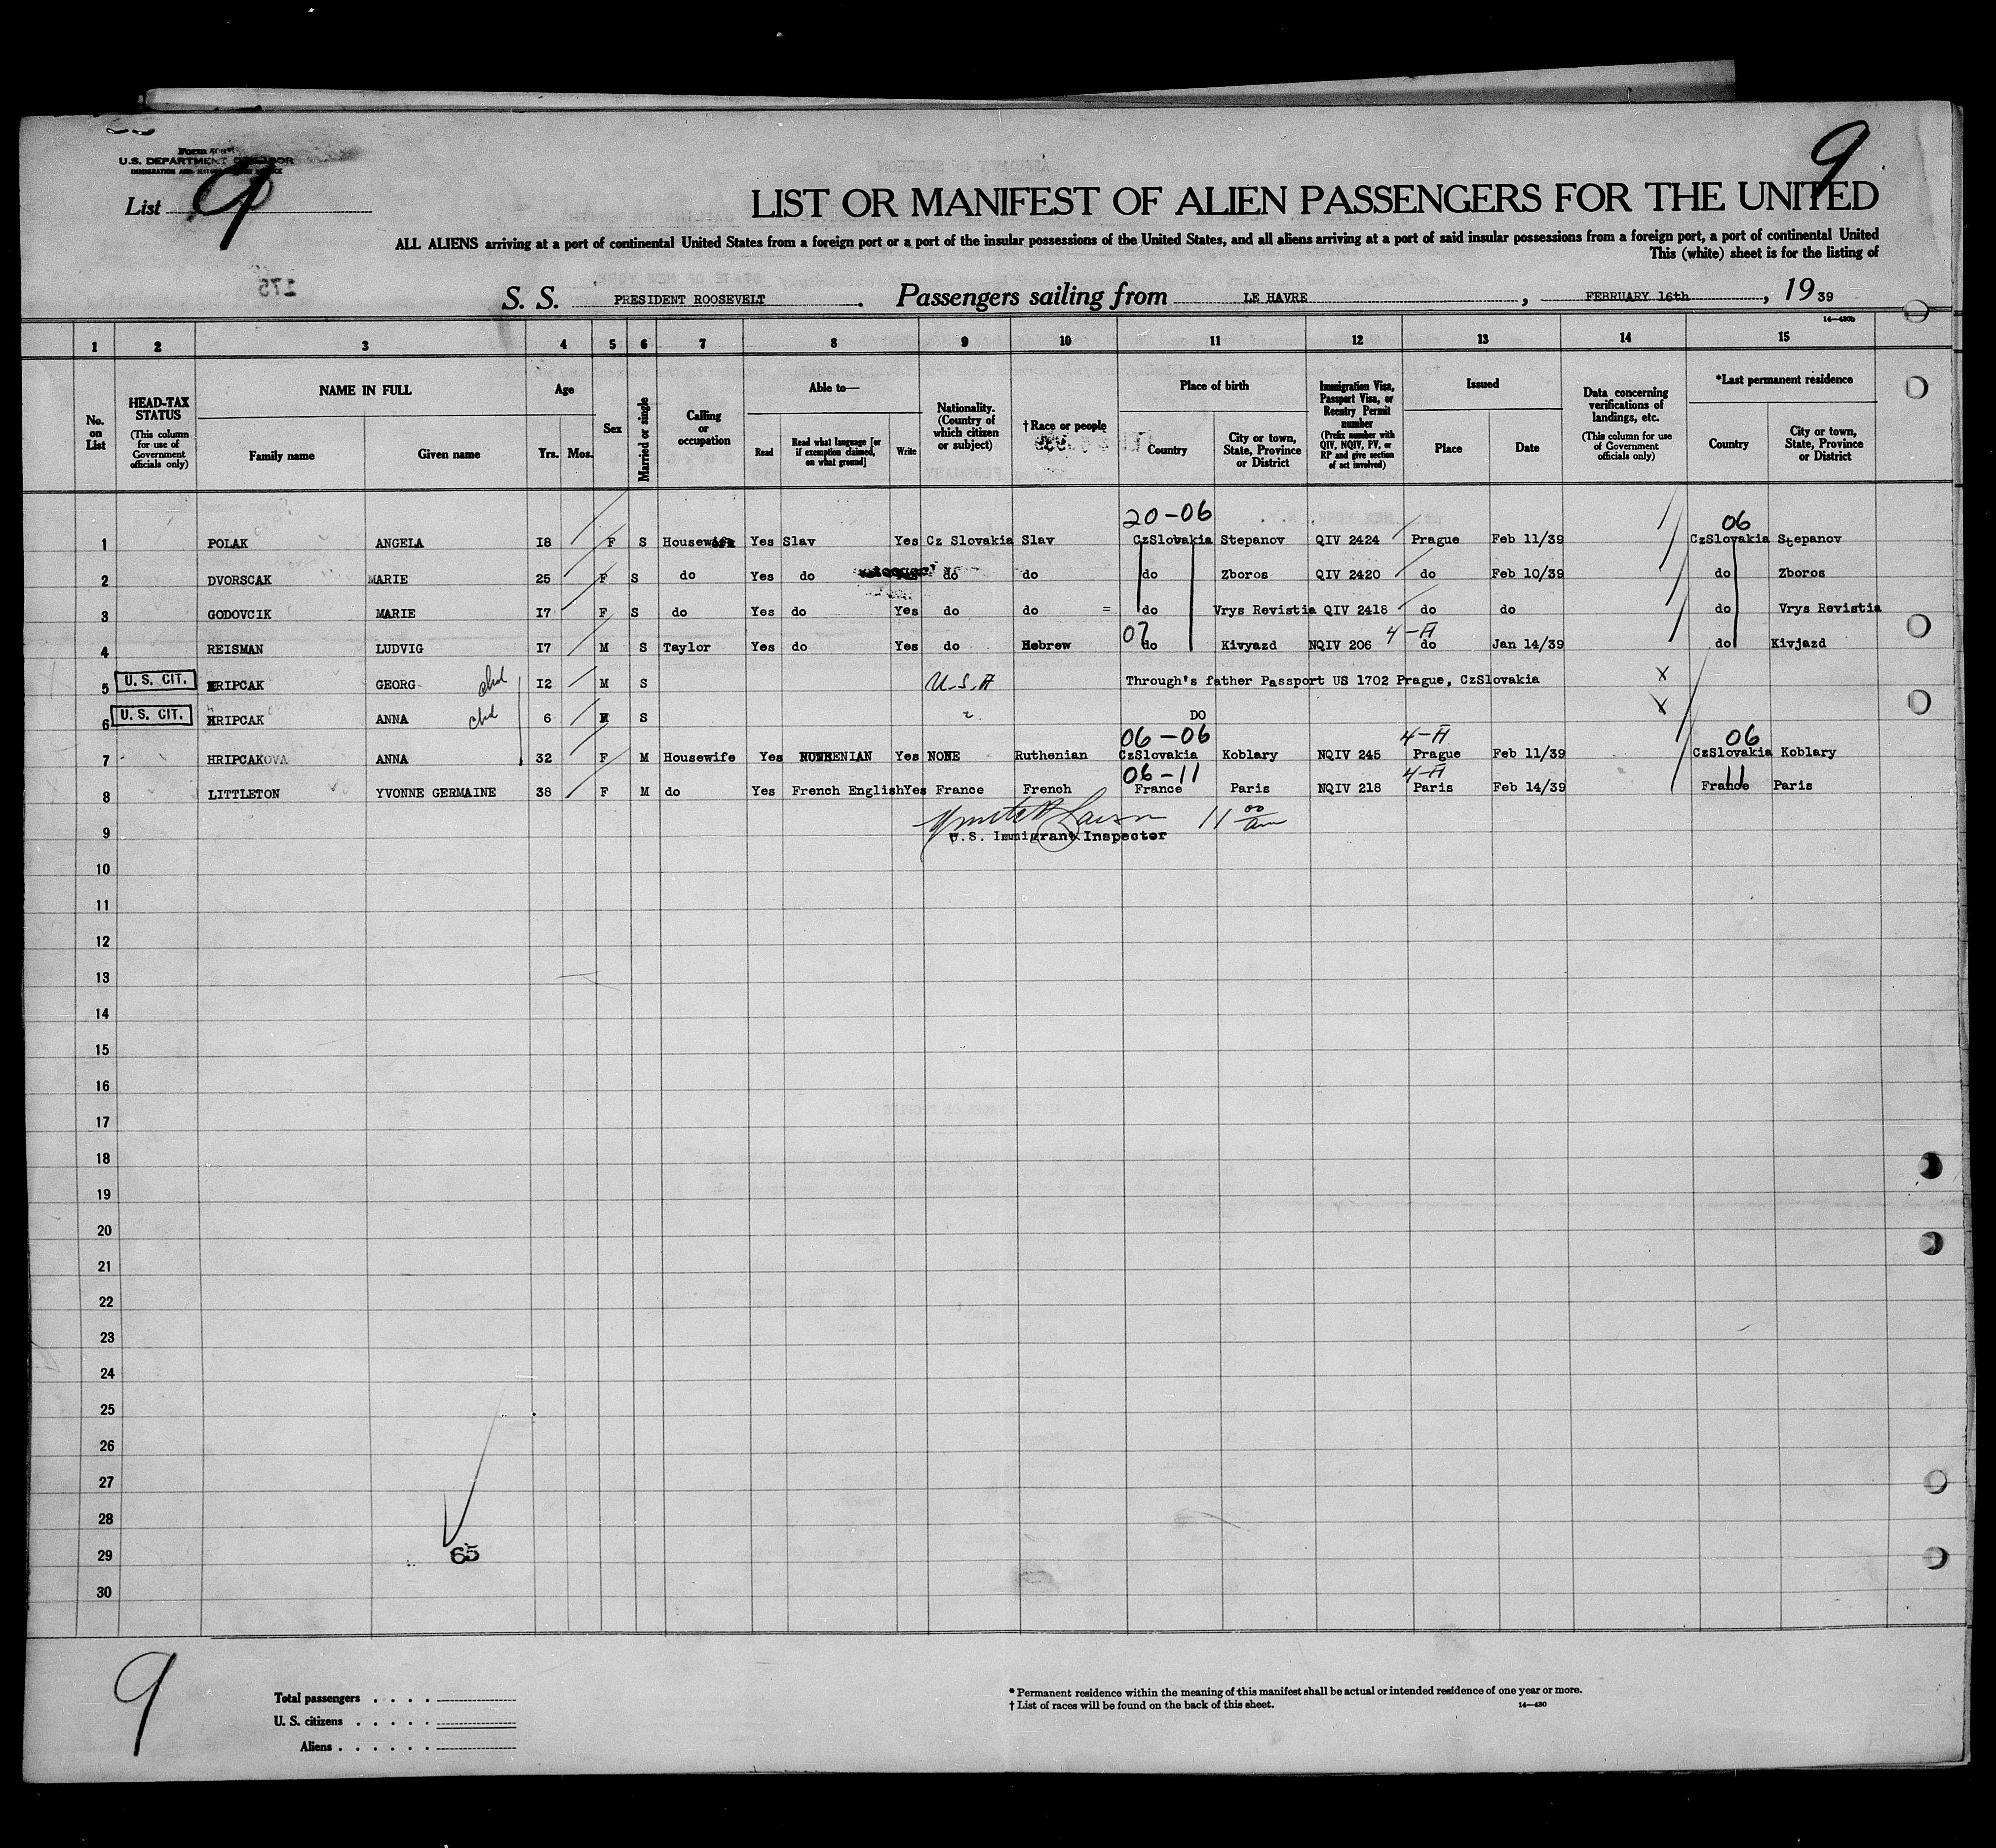 Form
U.S. DEPARTMENT OF LABOR
IMMIGRATION AND NATURALIZATION SERVICE
List 9
9
LIST OR MANIFEST OF ALIEN PASSENGERS FOR THE UNITED
ALL ALIENS arriving at a port of continental United States from a foreign port or a port of the insular possessions of the United States, and all aliens arriving at a port of said insular possessions from a foreign port, a port of continental United
This (white) sheet is for the listing of
S. S. PRESIDENT ROOSEVELT. Passengers sailing from LE HAVRE, FEBRUARY 16th, 1939
14—430b
1 2 3 4 5 6 7 8 9 10 11 12 13 14 15
No. on List
HEAD-TAX STATUS (This column for use of Government officials only)
NAME IN FULL Family name Given name
Age Yrs. Mos.
Sex
Married or single
Calling or occupation
Able to— Read Read what language [or if exemption claimed, on what ground] Write
Nationality. (Country of which citizen or subject)
†Race or people
Place of birth Country City or town, State, Province or District
Immigration Visa, Passport Visa, or Reentry Permit number (Prefix number with QIV, NQIV, PV, or RP and give section of act involved)
Issued Place Date
Data concerning verifications of landings, etc. (This column for use of Government officials only)
*Last permanent residence Country City or town, State, Province or District
20-06 06
1 POLAK ANGELA I8 F S Housewife Yes Slav Yes Cz Slovakia Slav CzSlovakia Stepanov QIV 2424 Prague Feb 11/39 CzSlovakia Stepanov
2 DVORSCAK MARIE 25 F S do Yes do do do do Zboros QIV 2420 do Feb 10/39 do Zboros
3 GODOVCIK MARIE I7 F S do Yes do Yes do do = do Vrys Revistia QIV 2418 do do do Vrys Revistia
07 4-A
4 REISMAN LUDVIG I7 M S Taylor Yes do Yes do Hebrew do Kivyazd NQIV 206 do Jan 14/39 do Kivjazd
5 U. S. CIT. HRIPCAK GEORG chd I2 M S U-S-A Through's father Passport US 1702 Prague, CzSlovakia X
6 U. S. CIT. HRIPCAK ANNA chd 6 S DO X
06-06 4-A 06
7 HRIPCAKOVA ANNA 32 F M Housewife Yes RUTHENIAN Yes NONE Ruthenian CzSlovakia Koblary NQIV 245 Prague Feb 11/39 CzSlovakia Koblary
06-11 4-A 11
8 LITTLETON YVONNE GERMAINE 38 F M do Yes French English Yes France French France Paris NQIV 218 Paris Feb 14/39 France Paris
11 00 am
9 U.S. Immigrant Inspector
10
11
12
13
14
15
16
17
18
19
20
21
22
23
24
25
26
27
28
29
65
30
9
Total passengers
U. S. citizens
Aliens
* Permanent residence within the meaning of this manifest shall be actual or intended residence of one year or more.
† List of races will be found on the back of this sheet. 14—430